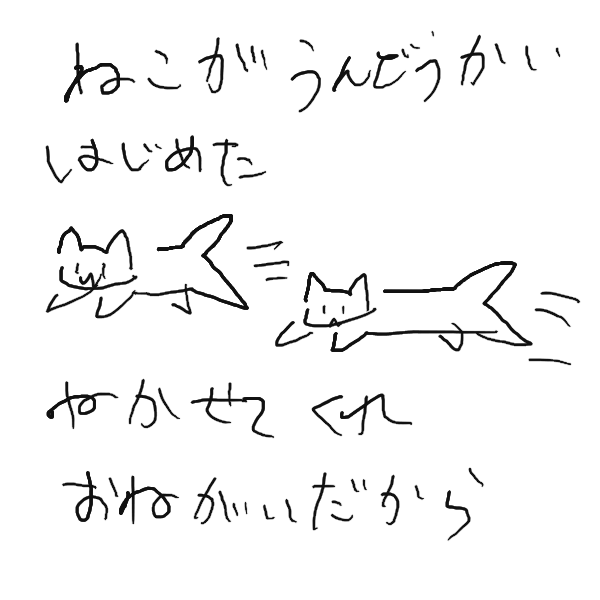 ねこが うんどうかい
はじめた
ねかせて くれ
おねがいだから